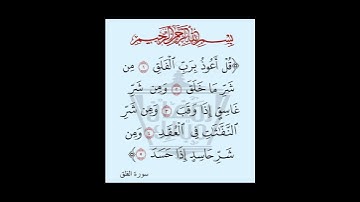 بسم الله الرحمن الرحيم
﴿قُلْ أَعُوذُ بِرَبِّ الْفَلَقِ ١ مِن
شَرِّ مَا خَلَقَ ٢ وَمِن شَرِّ
غَاسِقٍ إِذَا وَقَبَ ٣ وَمِن شَرِّ
النَّفَّاثَاتِ فِي الْعُقَدِ ٤ وَمِن
شَرِّ حَاسِدٍ إِذَا حَسَدَ ٥﴾
سورة الفلق